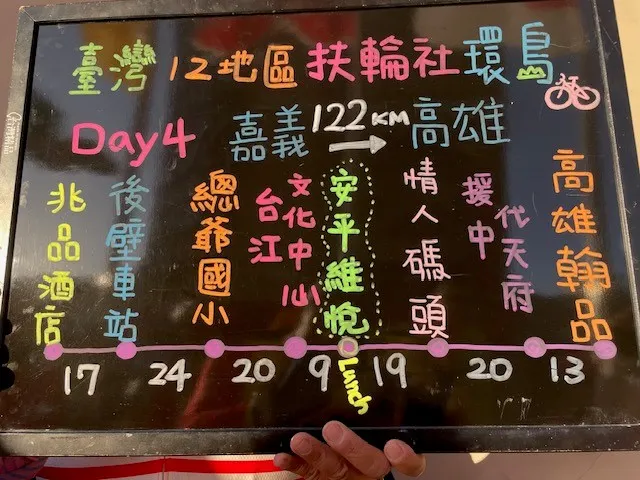 臺灣12地區扶輪社環島
Day4 嘉義 122KM 高雄
兆品酒店
後壁車站
總爺國小
台江文化中心
安平維悅
情人碼頭
援中代天府
高雄翰品
17 24 20 9 Lunch 19 20 13